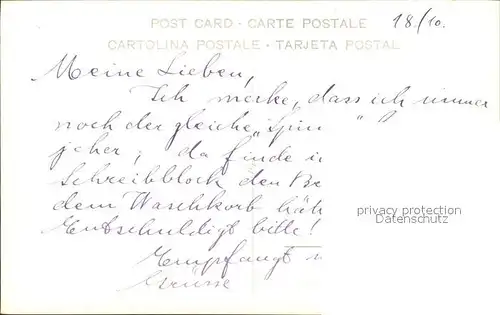 POST CARD · CARTE POSTALE
CARTOLINA POSTALE · TARJETA POSTAL
18./10.
Meine Lieben,
Ich merke, dass ich immer
noch der gleiche „Spin "
bin; da finde i
Schreibblock den Be
dem Waschkorb hät
Entschuldigt bitte!
Empfangt
Grüsse
privacy protection
Datenschutz